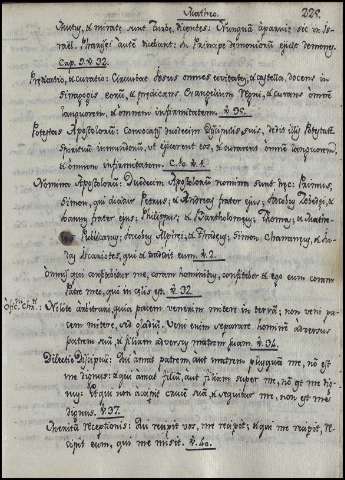 Matheo. 228.
Mutus, & mirate sunt Turbæ, dicentes: Nunquã apparuit sic in Is-
rael. Pharisęi autẽ dicebant: in Principe dęmoniorum ejicit dęmones.
Cap. 9. ℣. 32.
Prędicatio, & curatio: Circuibat Jhsus omnes civitates, & castella, docens in
Sinagogis eorũ, & prędicans Evangelium Regni, & curans omnẽ
languorem, & omnem infirmitatem. ℣. 35.
Potestas Apostolorũ: Convocatis duodecim Discipulis suis, dedit illis Potestatẽ
Spirituũ inmundorũ, ut ejicerent eos, & curarent omnẽ languorem,
& omnẽ infirmitatem. C. 10. ℣. 1.
Nomina Apostolorũ: Duodecim Apostolorũ nomina sunt hęc: Primus,
Simon, qui dicitur Petrus; & Andręas frater ejus; Jacobus Zebedęi, &
Joannes frater ejus; Philippus; & Bartholomęus; Thomas; & Mathęus
Publicanus; Jacobus Alphęi; & Thadęus; Simon Chananęus, & Ju-
das Iscariotes, qui & tradidit eum. ℣. 2.
Omnis qui confitebitur me, coram hominibus, confitebor & ego eum coram
Patre meo, qui in cęlis est. ℣. 32.
Nolite arbitrari, quia pacem venerim mitere in terrã; non veni pa-
cem mitere, sed gladiũ. Veni enim separare hominẽ adversus
patrem suũ, & filiam adversus matrem suam. ℣. 34.
Dilectio Discipuli: Qui amat patrem, aut matrem plusquã me, nõ est
me dignus: & qui amat filiũ, aut filiam super me, nõ est me dig-
nus: Et qui non accipit crucem suã, & sequitur me, non est me
dignus. ℣. 37.
receptionis: Qui recipit vos, me recipit; & qui me recipit, re-
cipit eum, qui me misit. ℣. 40.